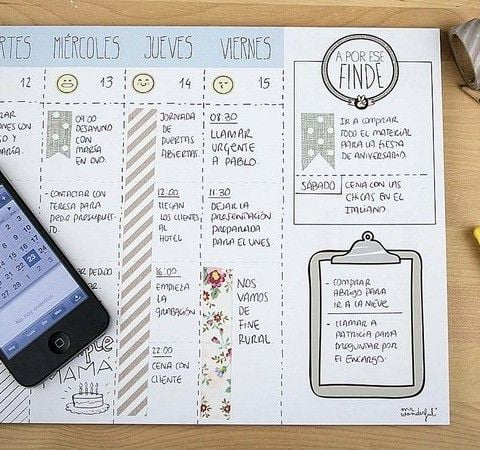 ARTES
MIÉRCOLES
JUEVES
VIERNES
12
13
14
15
A POR ESE
FINDE
09:00
DESAYUNO
CON
MARÍA
EN OVO.
- CONTACTAR CON
TERESA PARA
PEDIR PRESUPUES-
TO.
PEDIDO
MAMÁ
JORNADA
DE
PUERTAS
ABIERTAS.
12:00
LLEGAN
LOS CLIENTES
AL
HOTEL
16:00
EMPIEZA
LA
GRABACIÓN
22:00
CENA CON
CLIENTE
08:30
LLAMAR
URGENTE
A PABLO.
11:30
DEJAR LA
PRESENTACIÓN
PREPARADA
PARA EL LUNES
NOS
VAMOS
DE
FINE
RURAL
IR A COMPRAR
TODO EL MATERIAL
PARA LA FIESTA
DE ANIVERSARIO.
SÁBADO
CENA CON LAS
CHICAS EN EL
ITALIANO.
- COMPRAR
ABRIGO PARA
IR A LA NIEVE
- LLAMAR A
PATRICIA PARA
PREGUNTAR POR
EL ENCARGO.
mr.
wonderful*
No hay eventos